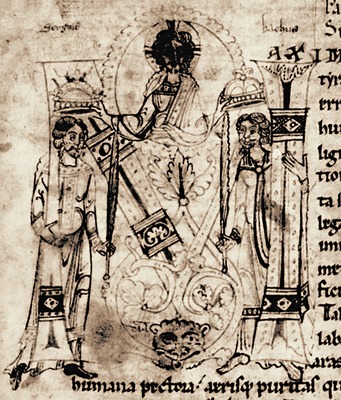 Sergius
bachus
AXIM
tyr
err
hu
lig
tion
ta
lega
me
fic
Tal
lab
aras
humana pectora. aerisq; puritas qu